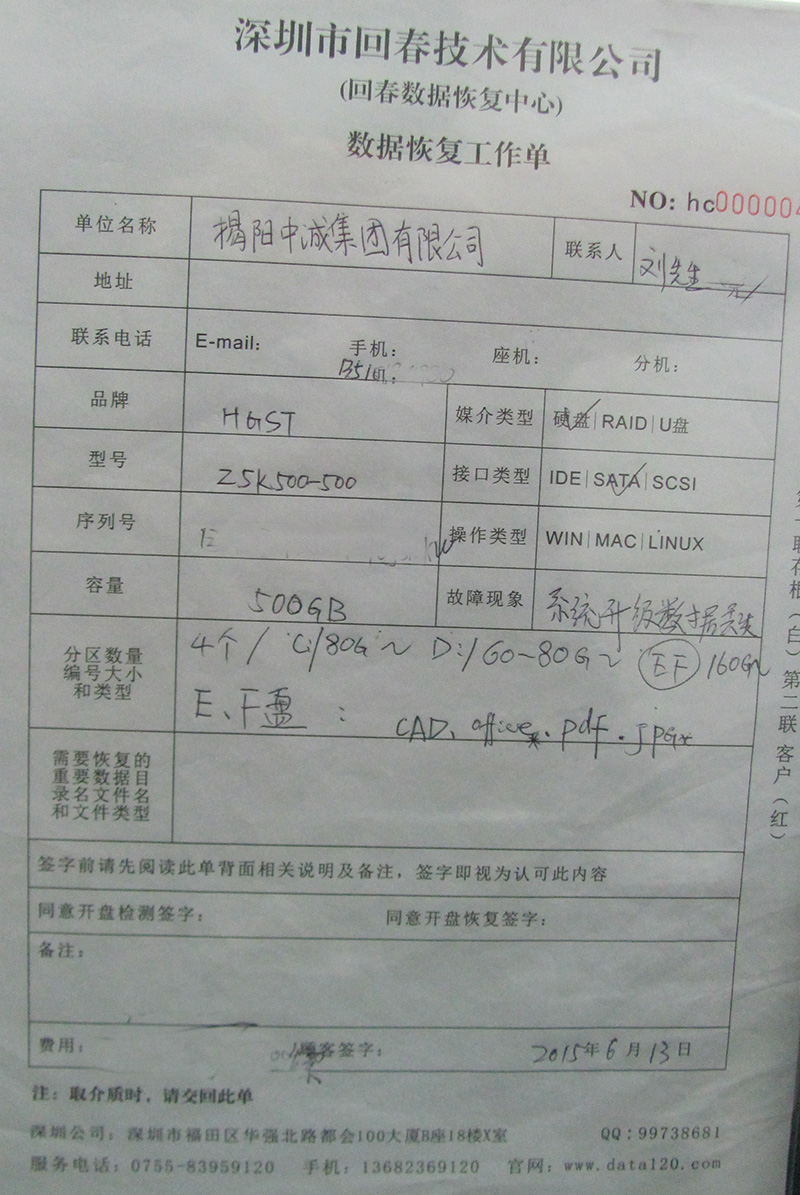 深圳市回春技术有限公司
(回春数据恢复中心)
数据恢复工作单
NO: hc000004
单位名称 揭阳中诚集团有限公司 联系人 刘先生
地址
联系电话 E-mail: 手机: 座机: 分机:
品牌 HGST 媒介类型 硬盘|RAID|U盘
型号 Z5K500-500 接口类型 IDE|SATA|SCSI
序列号 操作类型 WIN|MAC|LINUX
容量 500GB 故障现象 系统升级数据丢失
分区数量编号大小和类型 4个/ C:/80G~ D:/60-80G~ EF 160G~
E、F盘: CAD、office、pdf、jpg
需要恢复的
重要数据目
录名文件名
和文件类型
签字前请先阅读此单背面相关说明及备注，签字即视为认可此内容
同意开盘检测签字: 同意开盘恢复签字:
备注:
费用: 顾客签字: 2015年6月13日
注: 取介质时，请交回此单
深圳公司: 深圳市福田区华强北路都会100大厦B座18楼X室 QQ:99738681
服务电话: 0755-83959120 手机: 13682369120 官网: www.data120.com
联存根(白)第二联客户(红)